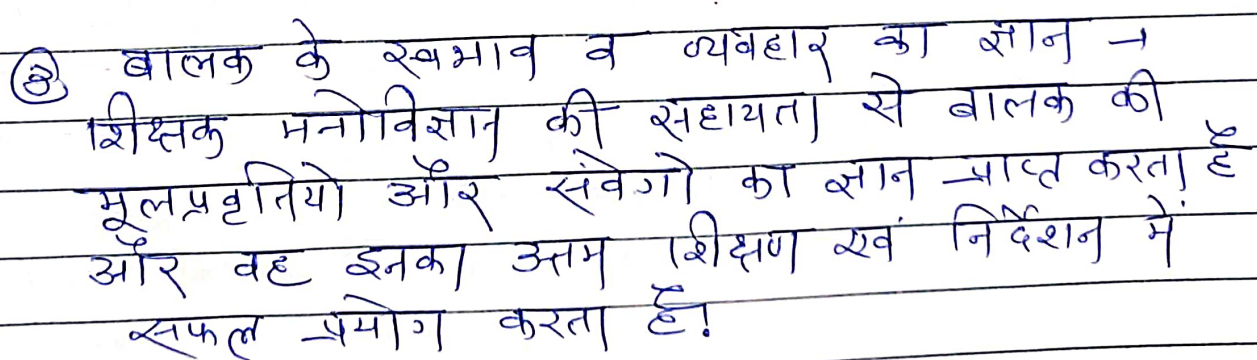 ③ बालक के स्वभाव व व्यवहार का ज्ञान →
शिक्षक मनोविज्ञान की सहायता से बालक की
मूलप्रवृतियो और संवेगो का ज्ञान प्राप्त करता है
और वह इनका उत्तम शिक्षण एवं निर्देशन में
सफल प्रयोग करता है!